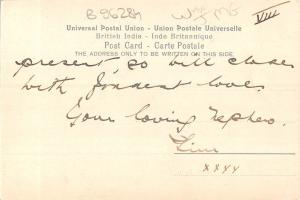 B 96284
VIII
Universal Postal Union - Union Postale Universelle
British India - Inde Britannique
Post Card - Carte Postale
THE ADDRESS ONLY TO BE WRITTEN ON THIS SIDE.
present, so will close
with fondest love.
Your loving Nephew.
xxxx